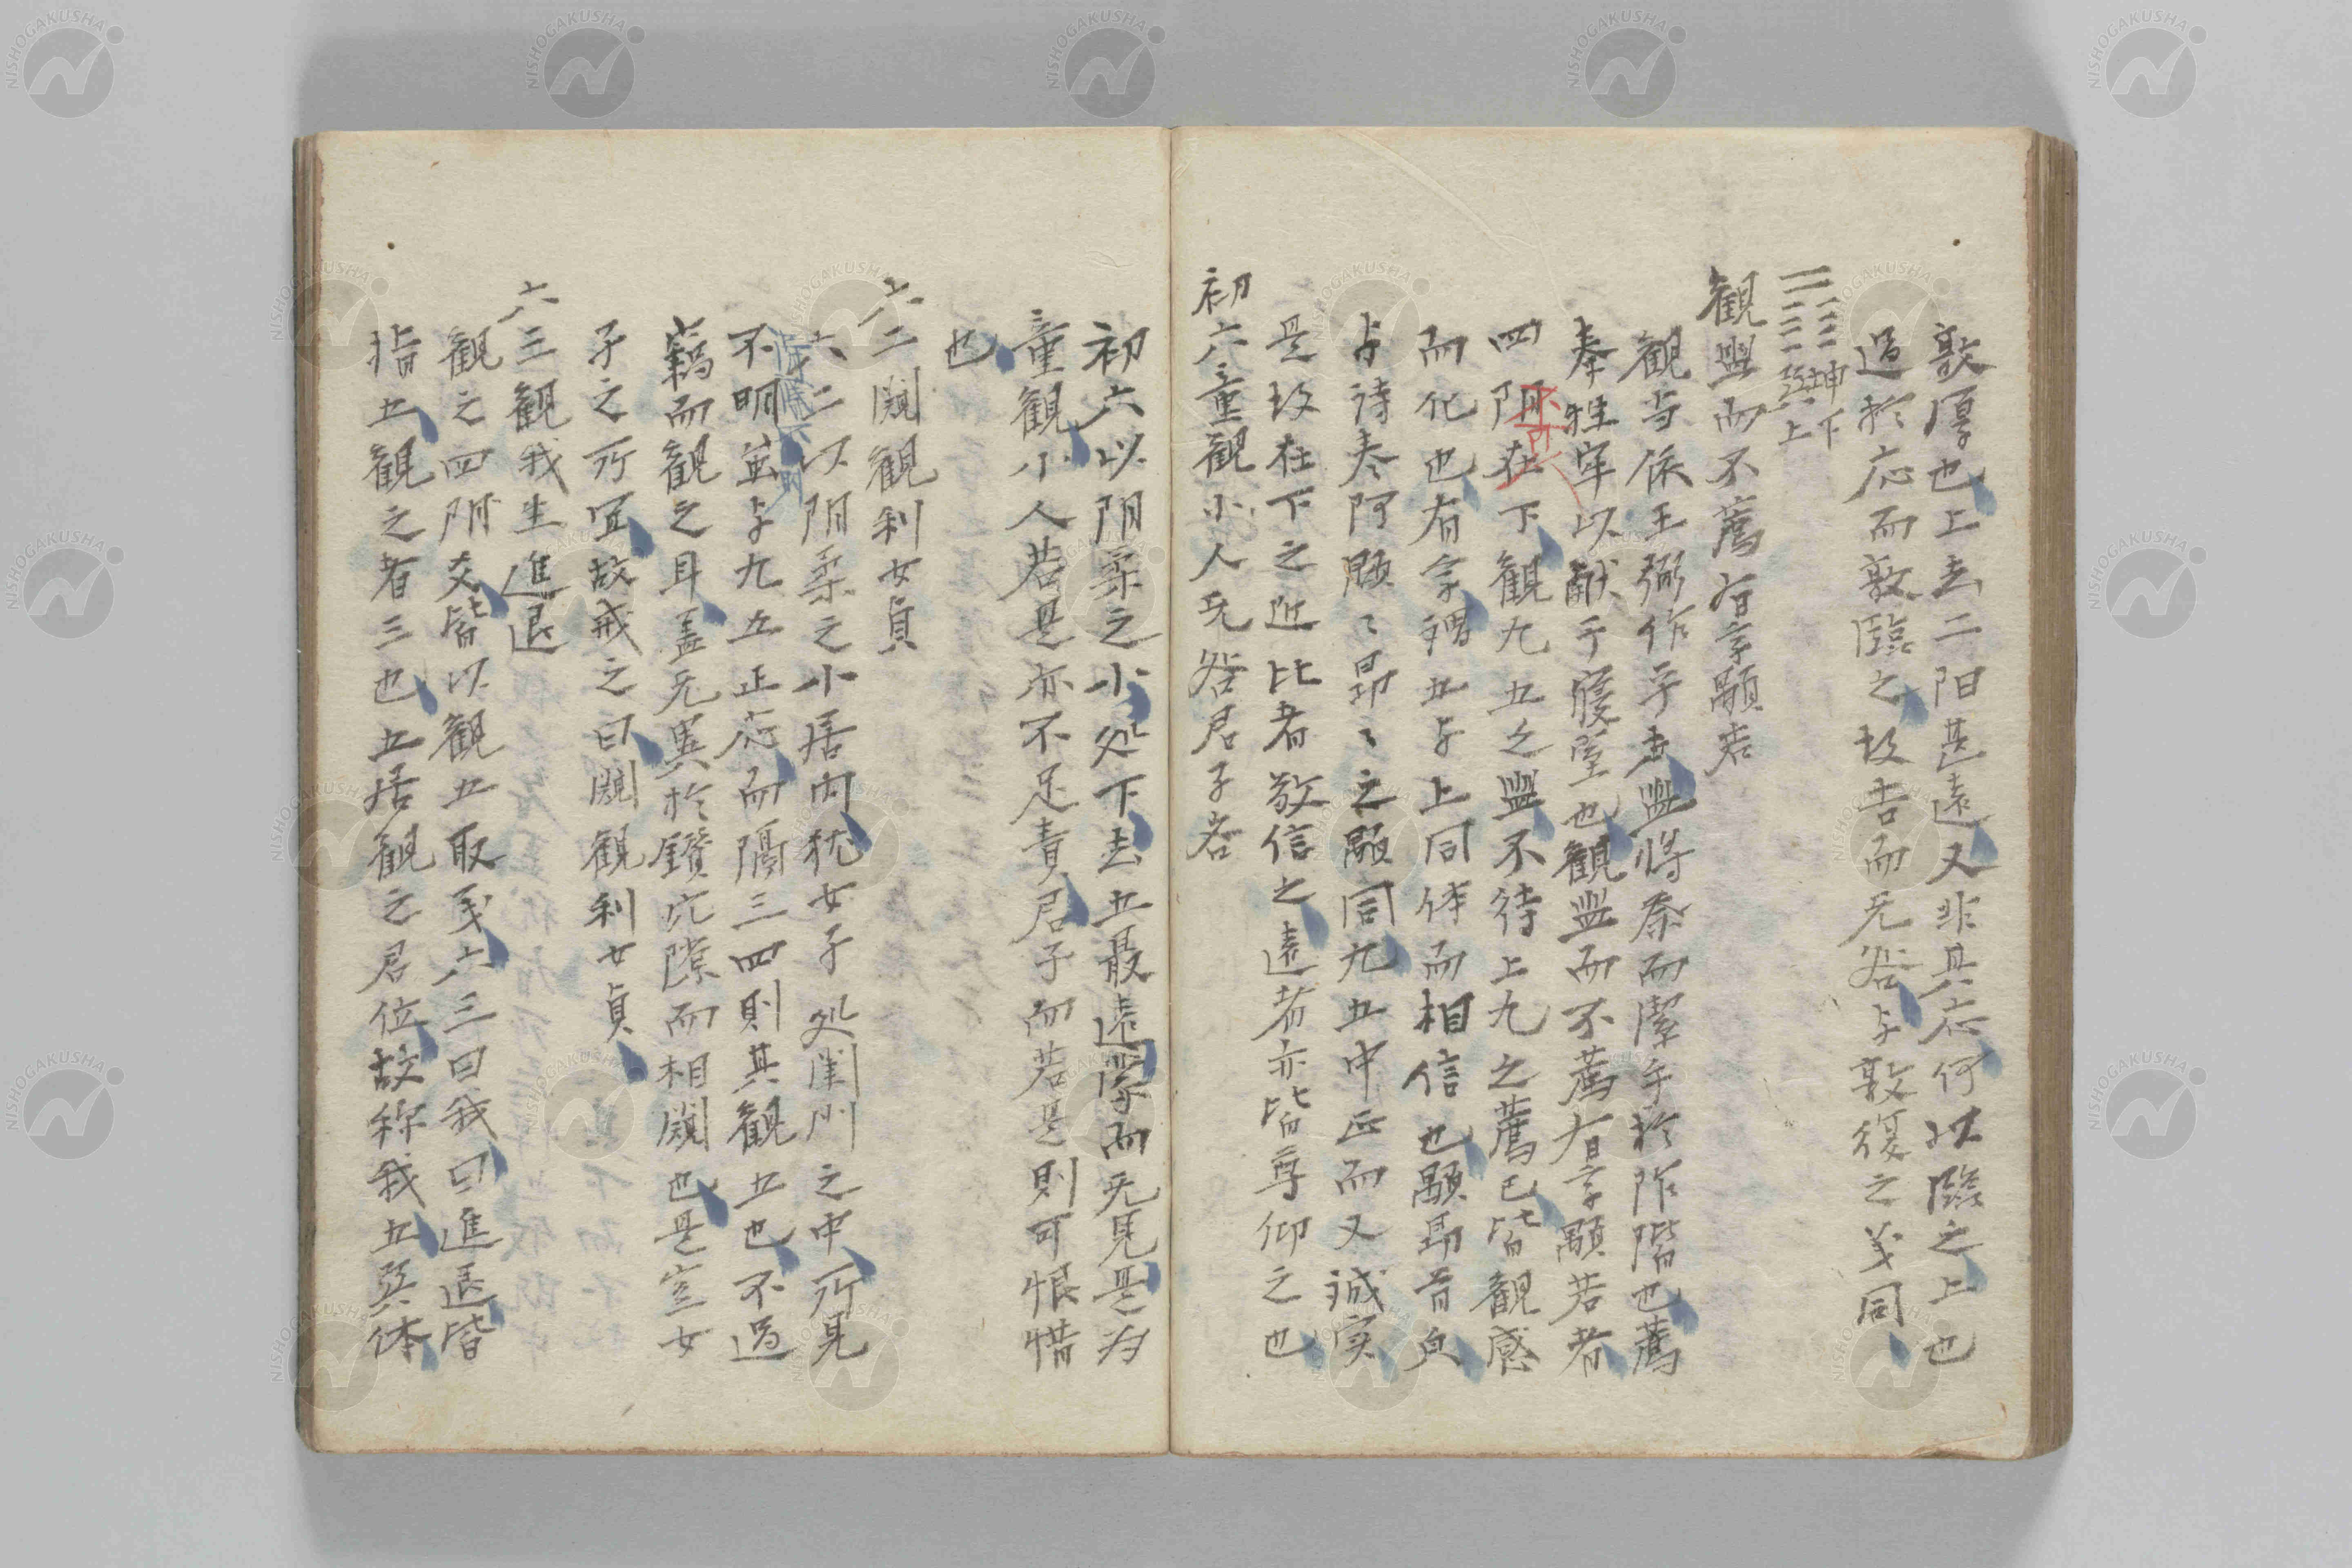 敦厚也上去二阳甚遠又非其応何以臨之上也
過於応而敦臨之故吉而无咎与敦復之义同
坤下
巽上
観盥而不薦有孚顒若
観当依王弼作平声盥将祭而潔手於阼階也薦
奉牲牢以献于寝室也観盥而不薦有孚顒若者
四阴在下観九五之盥不待上九之薦已皆観感
而化也有孚謂五与上同体而相信也顒昂首皃
与詩巻阿顒〻昂〻之顒同九五中正而又誠実
是故在下之近比者敬信之遠者亦皆尊仰之也
初六童観小人无咎君子吝
初六以阴柔之小処下去五最遠蒙而无見是为
童観小人若是亦不足責君子而若是則可恨惜
也
六二闚観利女貞
六二以阴柔之小居内犹女子処閨門之中所見
不明虽与九五正応而隔三四則其観五也不過
竊而観之耳盖无異於鑽穴隙而相闚也是室女
子之所宜故戒之曰闚観利女貞
六三観我生進退
観之四阴爻皆以観五取义六三曰我曰進退皆
指五観之者三也五居観之君位故称我五巽体
NISHOGAKUSHA